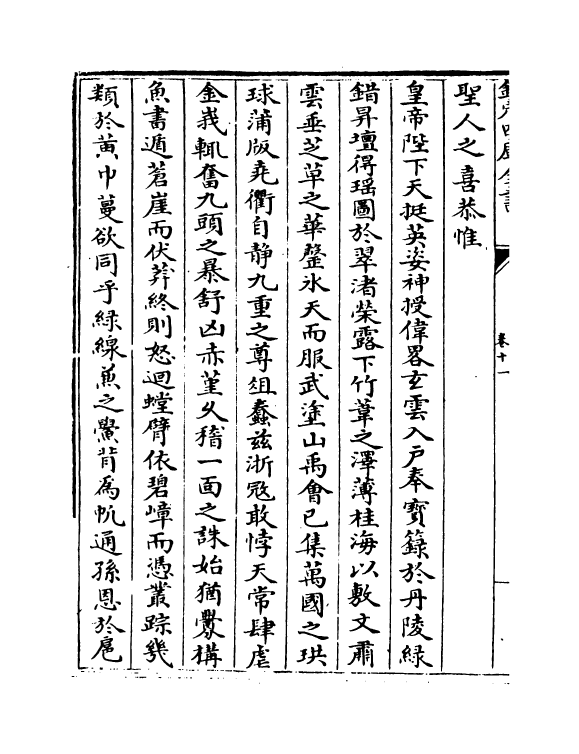 欽定四庫全書
卷十一
聖人之喜恭惟
皇帝陛下天挺英姿神授偉畧玄雲入戸奉寳籙於丹陵緑
錯昇壇得瑶圖於翠渚榮露下竹葦之澤薄桂海以敷文肅
雲垂芝草之華蹩氷天而服武塗山禹會已集萬國之珙
球蒲版堯衢自静九重之尊俎蠢兹浙冦敢悖天常肆虐
金峩輒奮九頭之暴舒凶赤堇乆稽一面之誅始猶爨構
魚書遁蒼崖而伏莽終則怒迴螳臂依碧嶂而憑叢踪幾
類於黄巾蔓欲同乎緑線兼之鱟背爲帆通孫恩於扈